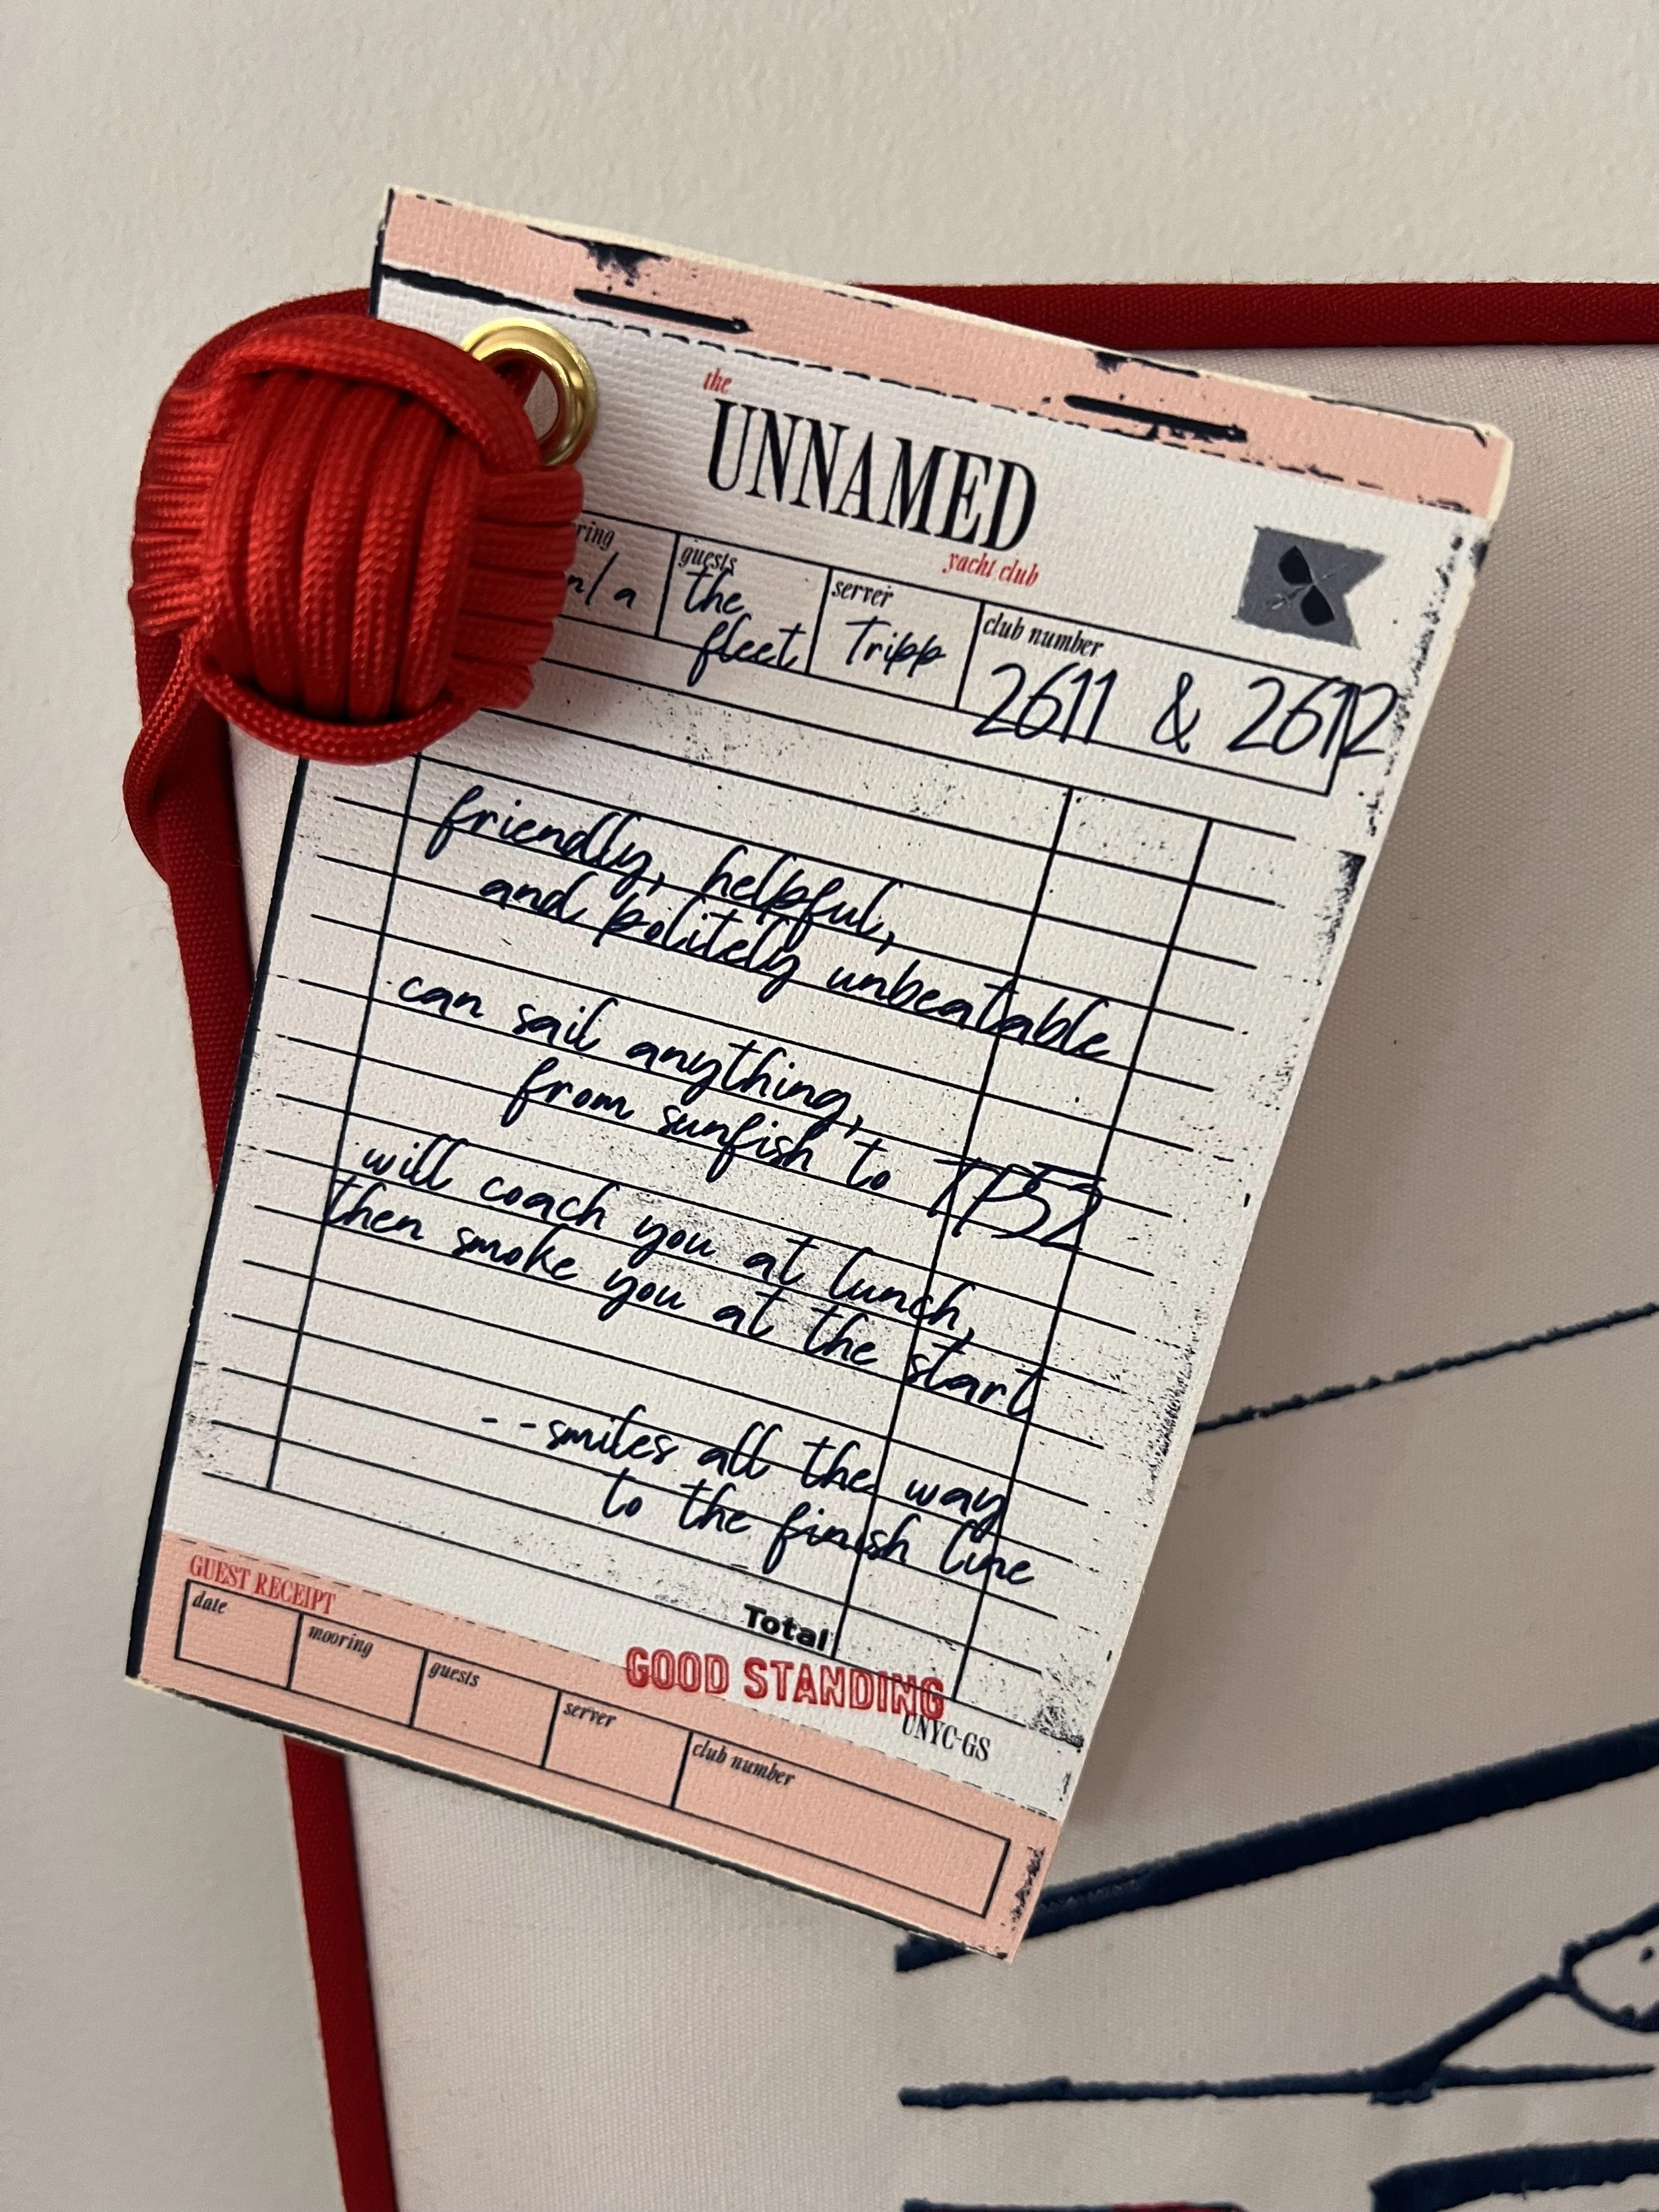 the
UNNAMED
yacht club
guests server club number
n/a the fleet Tripp 2611 & 2612
friendly, helpful,
and politely unbeatable
can sail anything,
from sunfish to TP52
will coach you at lunch,
then smoke you at the start
--smiles all the way
to the finish line
Total
GOOD STANDING
UNYC-GS
GUEST RECEIPT
date mooring guests server club number